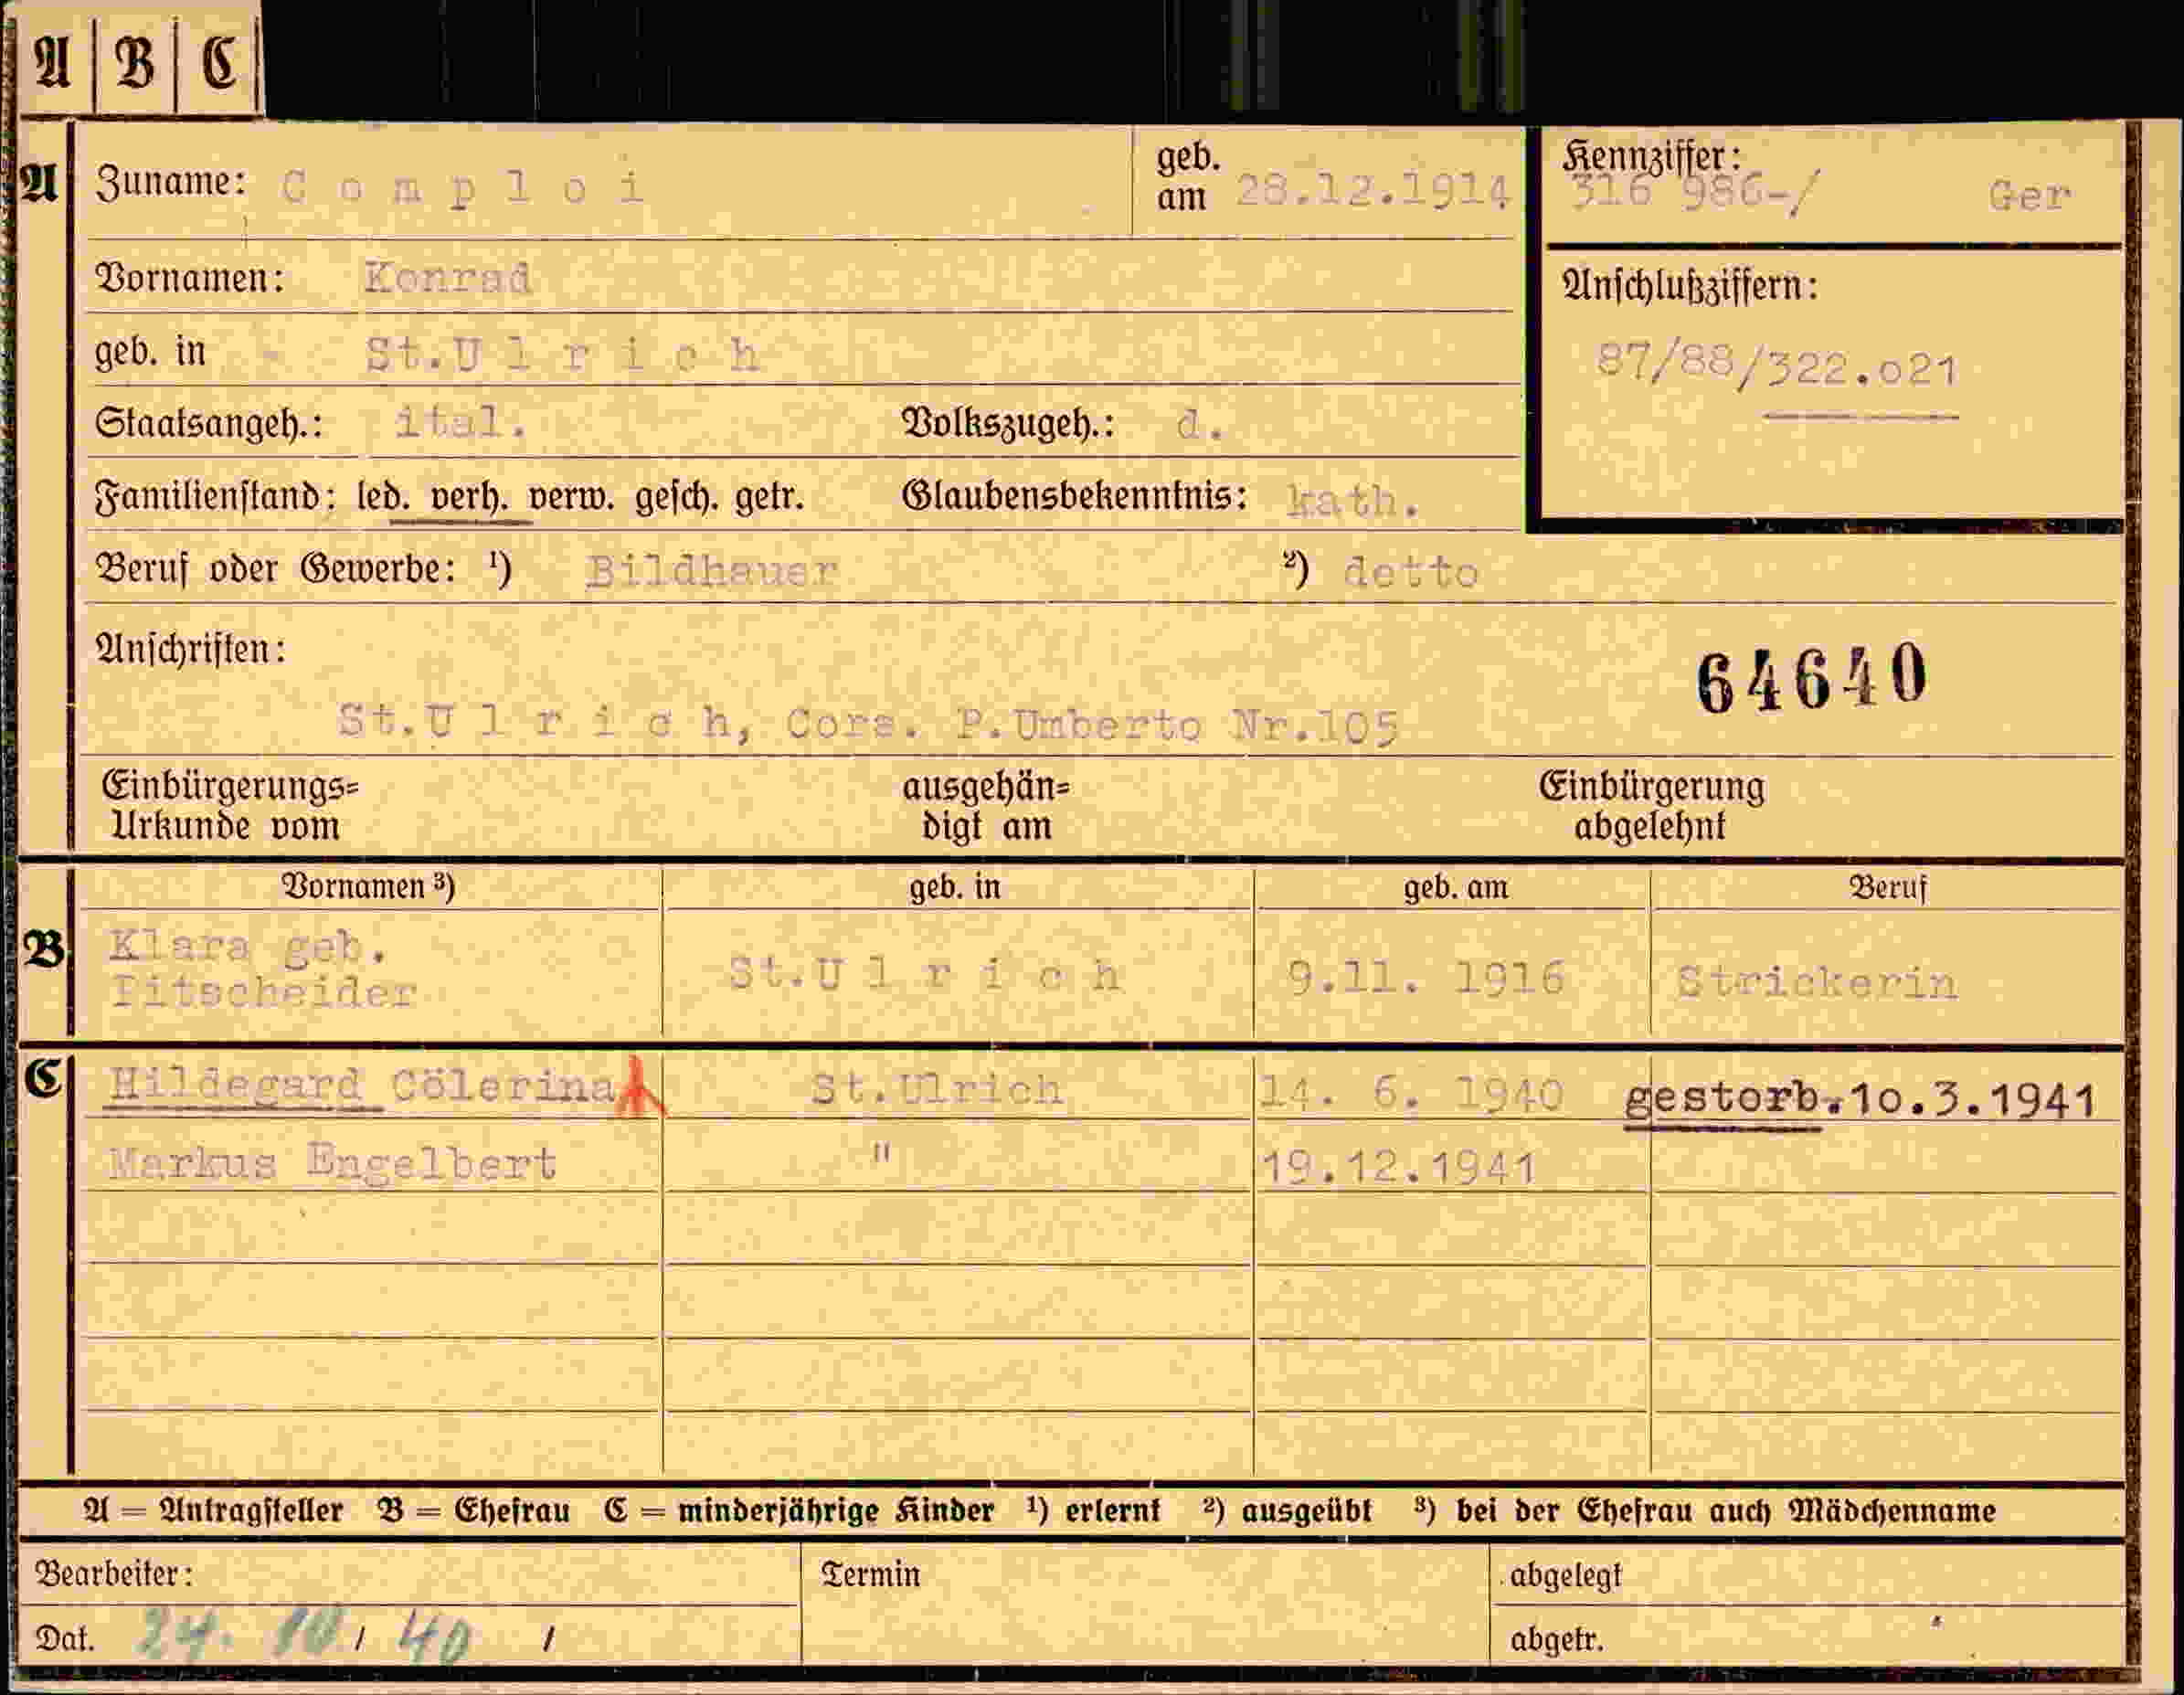 A B C
A
Zuname: Comploi
geb. am 28.12.1914
Kennziffer:
316 986-/ Ger
Vornamen: Konrad
Anschlußziffern:
geb. in St.Ulrich
87/88/322.021
Staatsangeh.: ital. Volkszugeh.: d.
Familienstand: led. verh. verw. gesch. getr. Glaubensbekenntnis: kath.
Beruf oder Gewerbe: ¹) Bildhauer ²) detto
Anschriften:
64640
St.Ulrich, Cors. P.Umberto Nr.105
Einbürgerungs= ausgehän= Einbürgerung
Urkunde vom digt am abgelehnt
Vornamen ³) geb. in geb. am Beruf
B
Klara geb.
Pitscheider St.Ulrich 9.11. 1916 Strickerin
C
Hildegard Cölerina St.Ulrich 14. 6. 1940 gestorb.10.3.1941
Markus Engelbert " 19.12.1941
A = Antragsteller B = Ehefrau C = minderjährige Kinder ¹) erlernt ²) ausgeübt ³) bei der Ehefrau auch Mädchenname
Bearbeiter: Termin abgelegt
Dat. 24. 10/ 40 / abgetr.